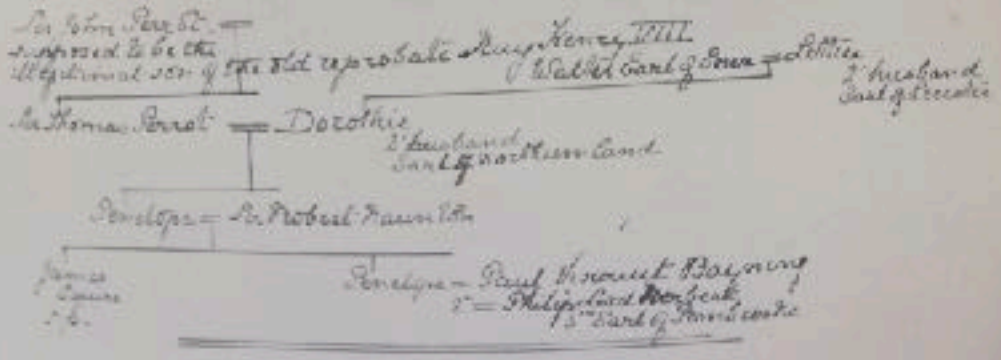 Sir John Perrot =
supposed to be the
illegitimate son of the old reprobate King Henry VIII
Walter Earl of Essex = Lettice
2d husband
Earl of Leicester
Sir Thomas Perrot = Dorothie
2d husband
Earl of Northumberland
Penelope = Sr. Robert Naunton
James
Penelope = Paul Viscount Bayning
2 = Philip Lord Herbert
5th Earl of Pembroke